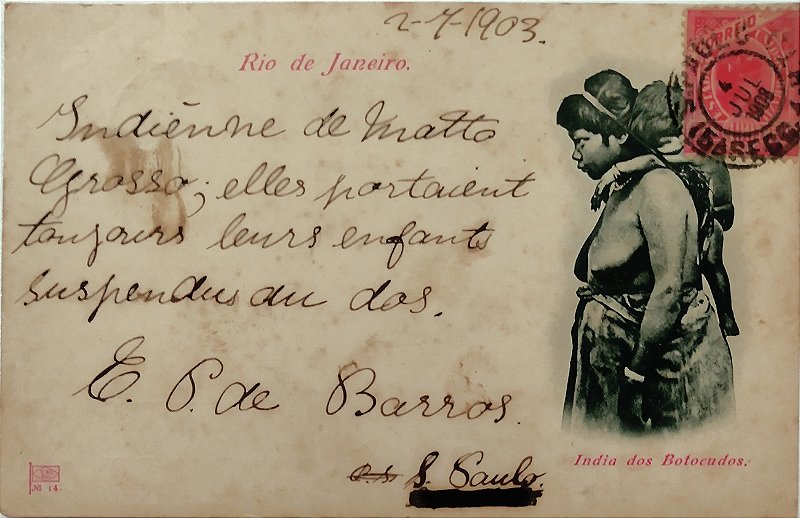 2-7-1903.
Rio de Janeiro.
Indiênne de Matto
Grosso; elles portaient
toujours leurs enfants
suspendus du dos.
E. P. de Barros.
S. Paulo.
India dos Botocudos.
Nº 14.
CORREIO
4
JUL
1903